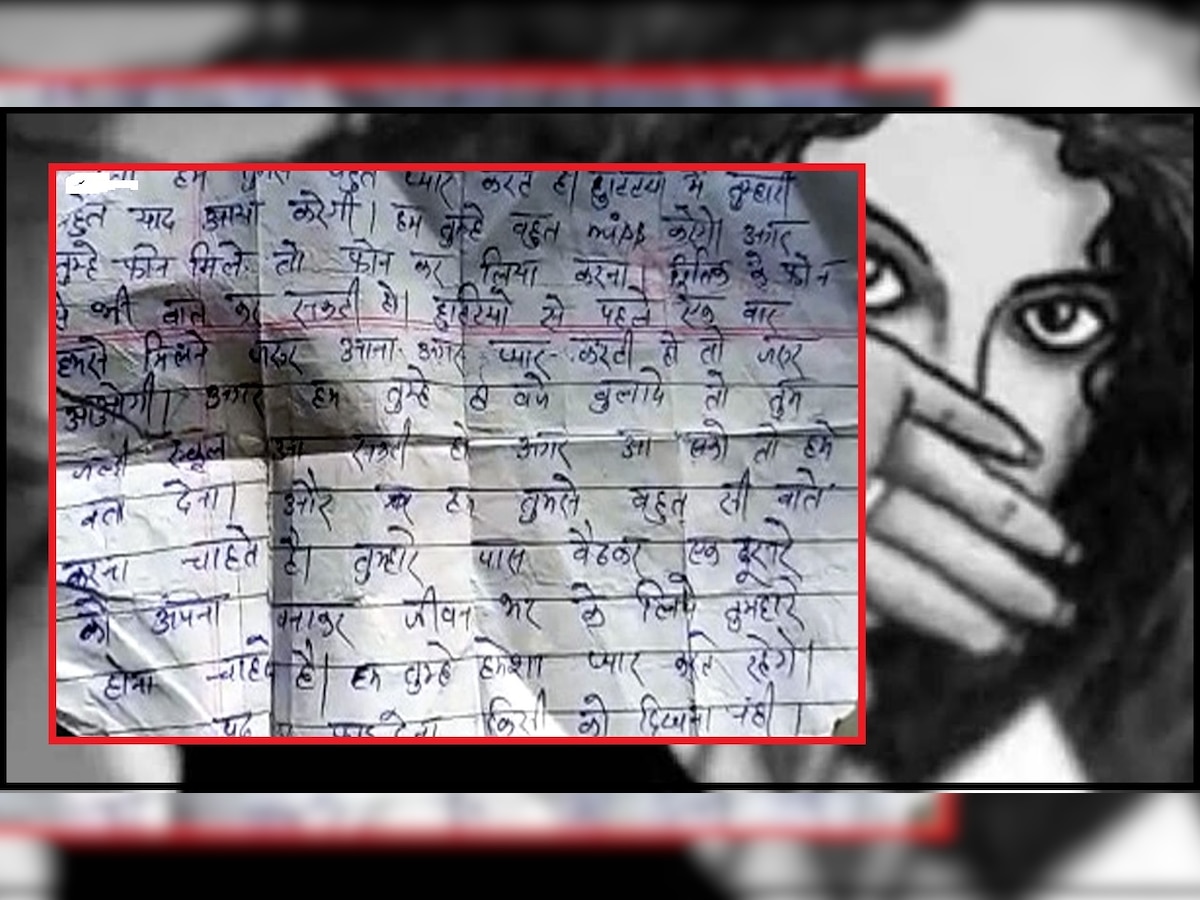 हम तुमसे बहुत प्यार करते है। छुट्टियों में तुम्हारी
बहुत याद आया करेगी। हम तुम्हे बहुत miss करेगे। अगर
तुम्हे फोन मिले तो फोन कर लिया करना। के फोन
से भी बाते कर सकती हो। छुट्टियो से पहले एक बार
हमसे मिलने जरुर आना अगर प्यार करती हो तो जरुर
आओगी। अगर हम तुम्हे 8 बजे बुलाये तो तुम
जल्दी स्कूल आ सकती हो अगर आ सको तो हमे
बता देना। और हम तुमसे बहुत सी बाते
करना चाहते है। तुम्हारे पास बैठकर एक दूसरे
को अपना बनाकर जीवन भर के लिये तुमहारे
होना चाहते है। हम तुम्हे हमेशा प्यार करते रहेगे।
पढ़ फाड़ देना किसी को दिखाना नही।